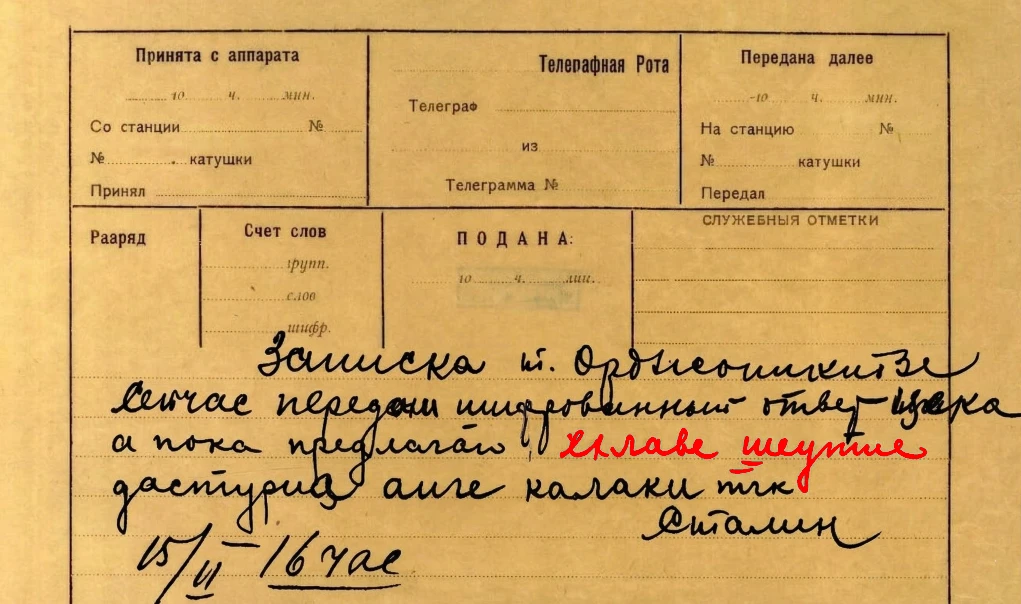 Принята с аппарата
го ч. мин.
Со станции №
№ катушки
Принял
Телеграфная Рота
Телеграф
из
Телеграмма №
Передана далее
го ч. мин.
На станцию №
№ катушки
Передал
Разряд
Счет слов
групп.
слов
шифр.
ПОДАНА:
го ч. мин.
СЛУЖЕБНЫЯ ОТМЕТКИ
Записка т. Орджоникитзе
Сейчас передам шифрованный ответ Цека
а пока предлагаю ехлаве шеутие
дастуриа аиге калаки тчк
Сталин
15/II 16 час